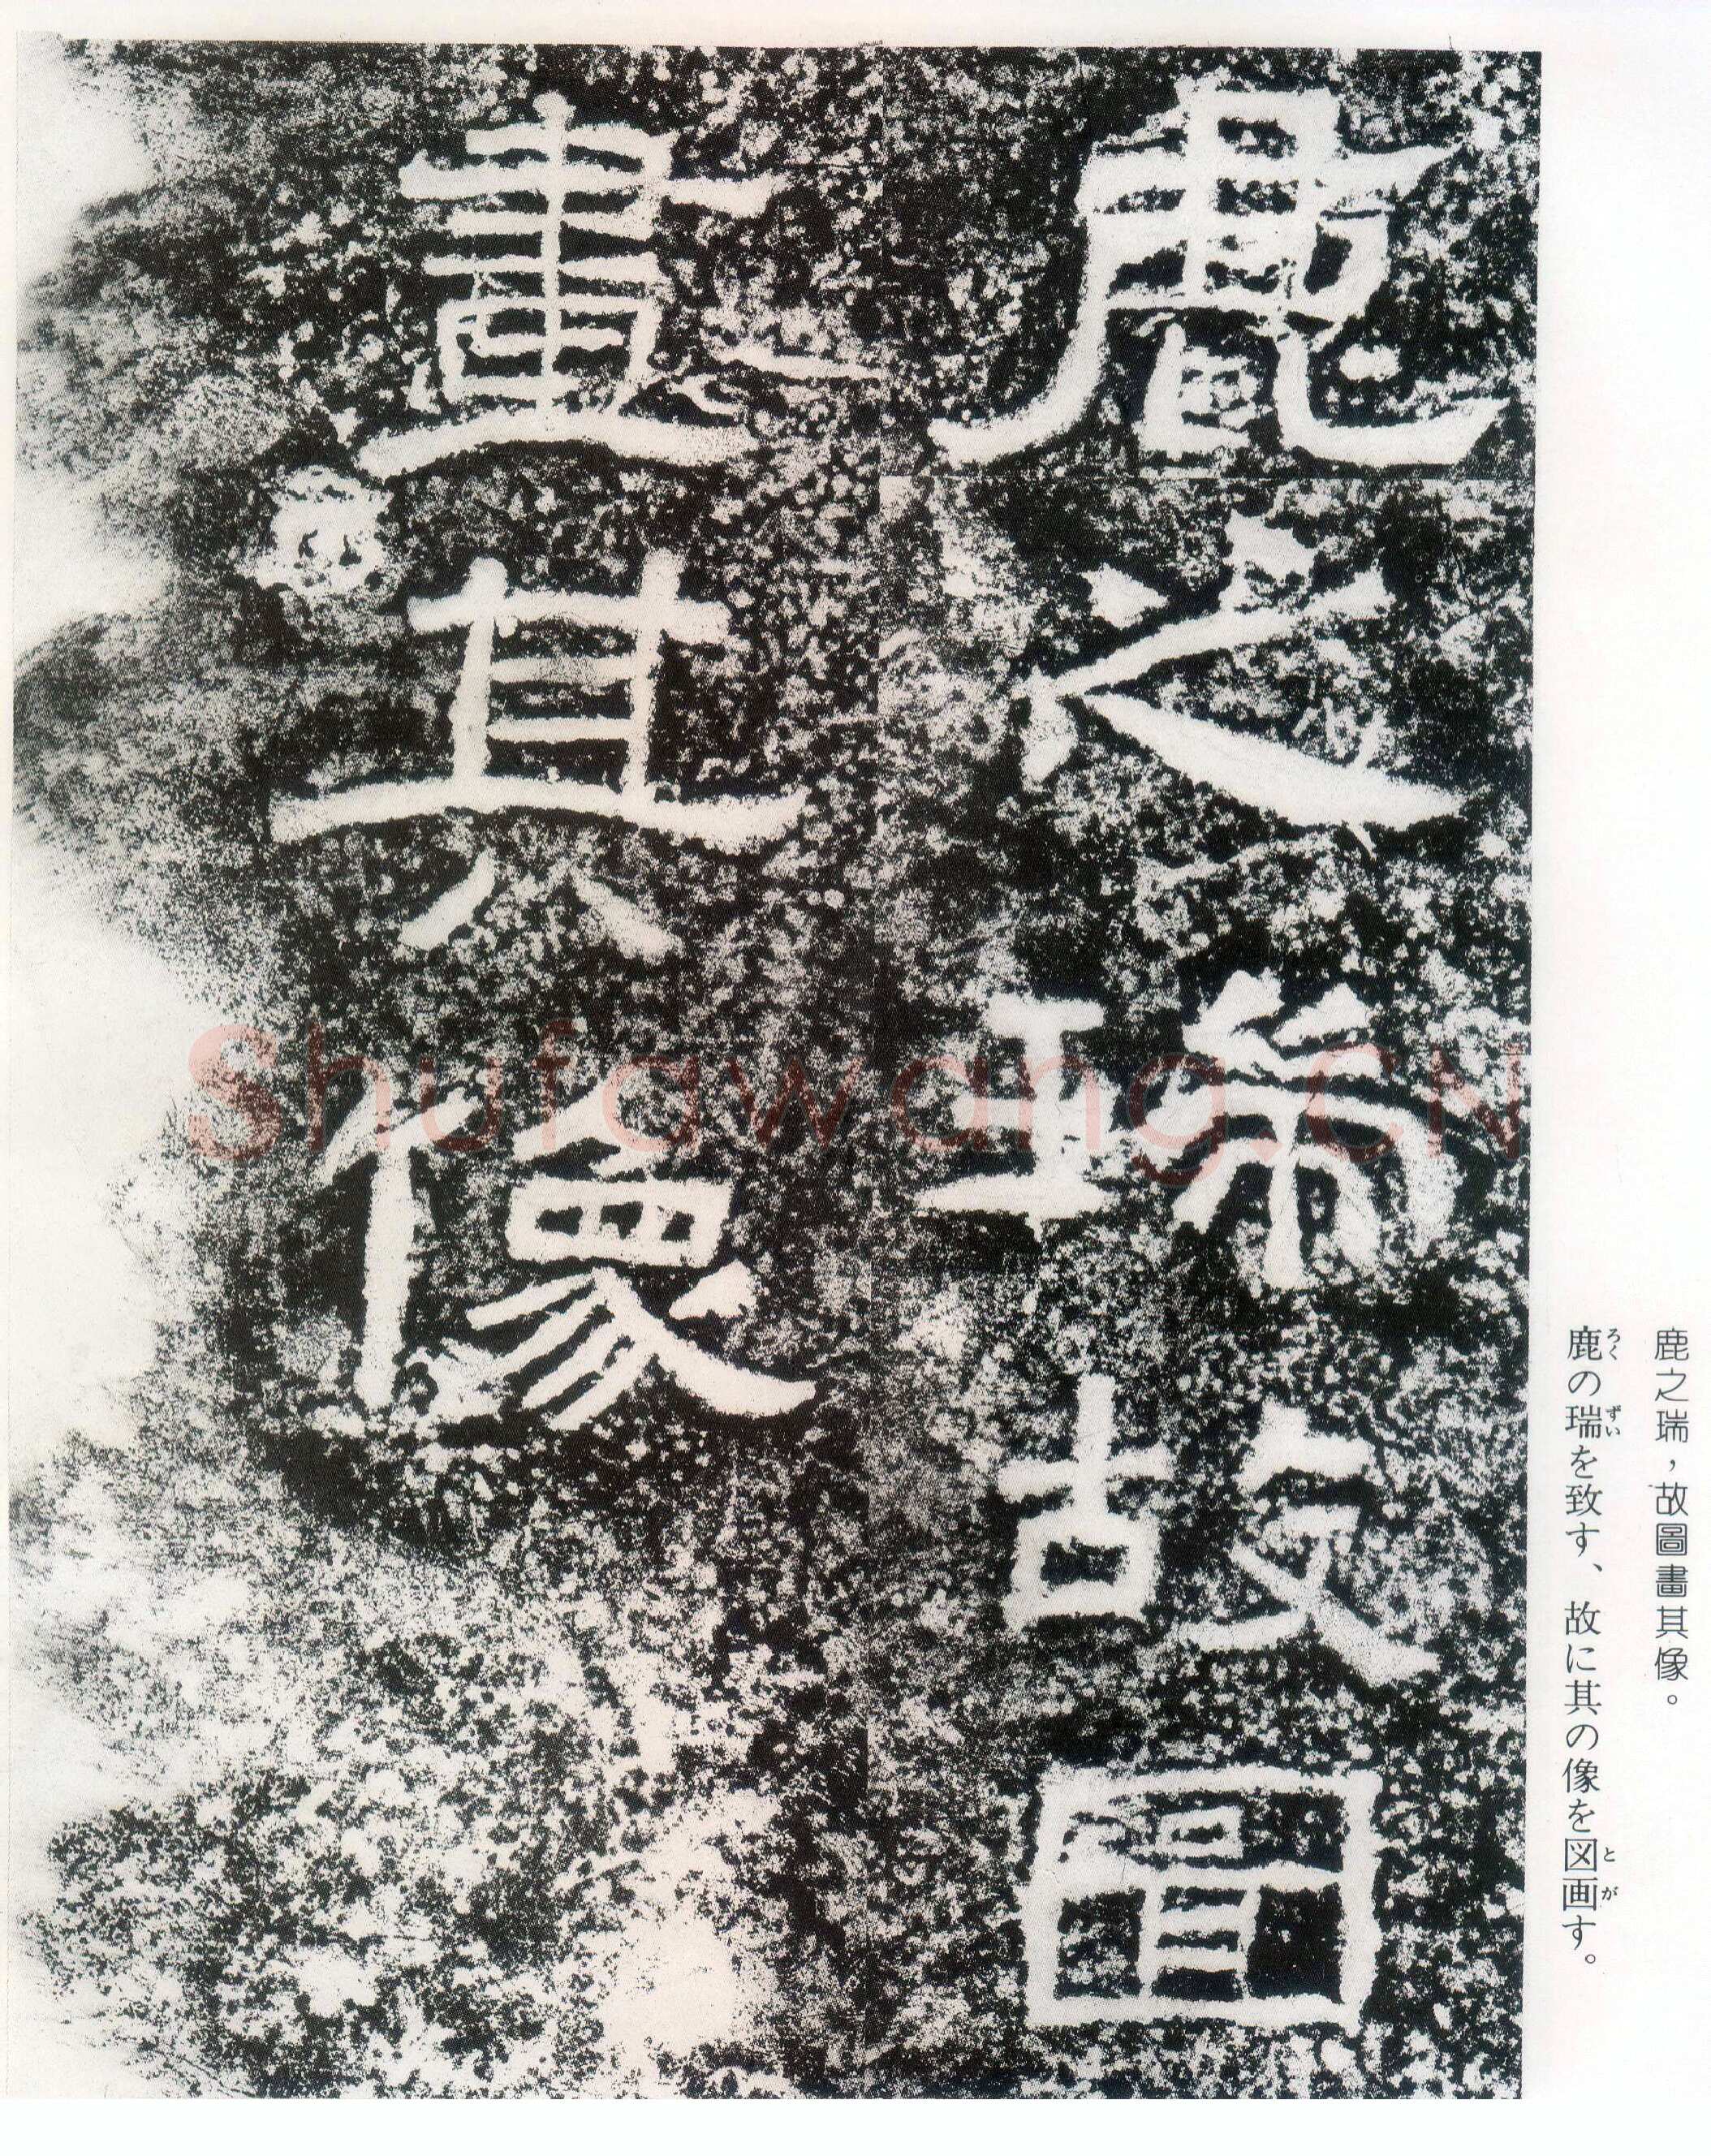 鹿之瑞，故圖畫其像。
鹿の瑞を致す、故に其の像を図画す。
ろく
ずい
とが
鹿之瑞故圖
畫其像
Shufawang.CN